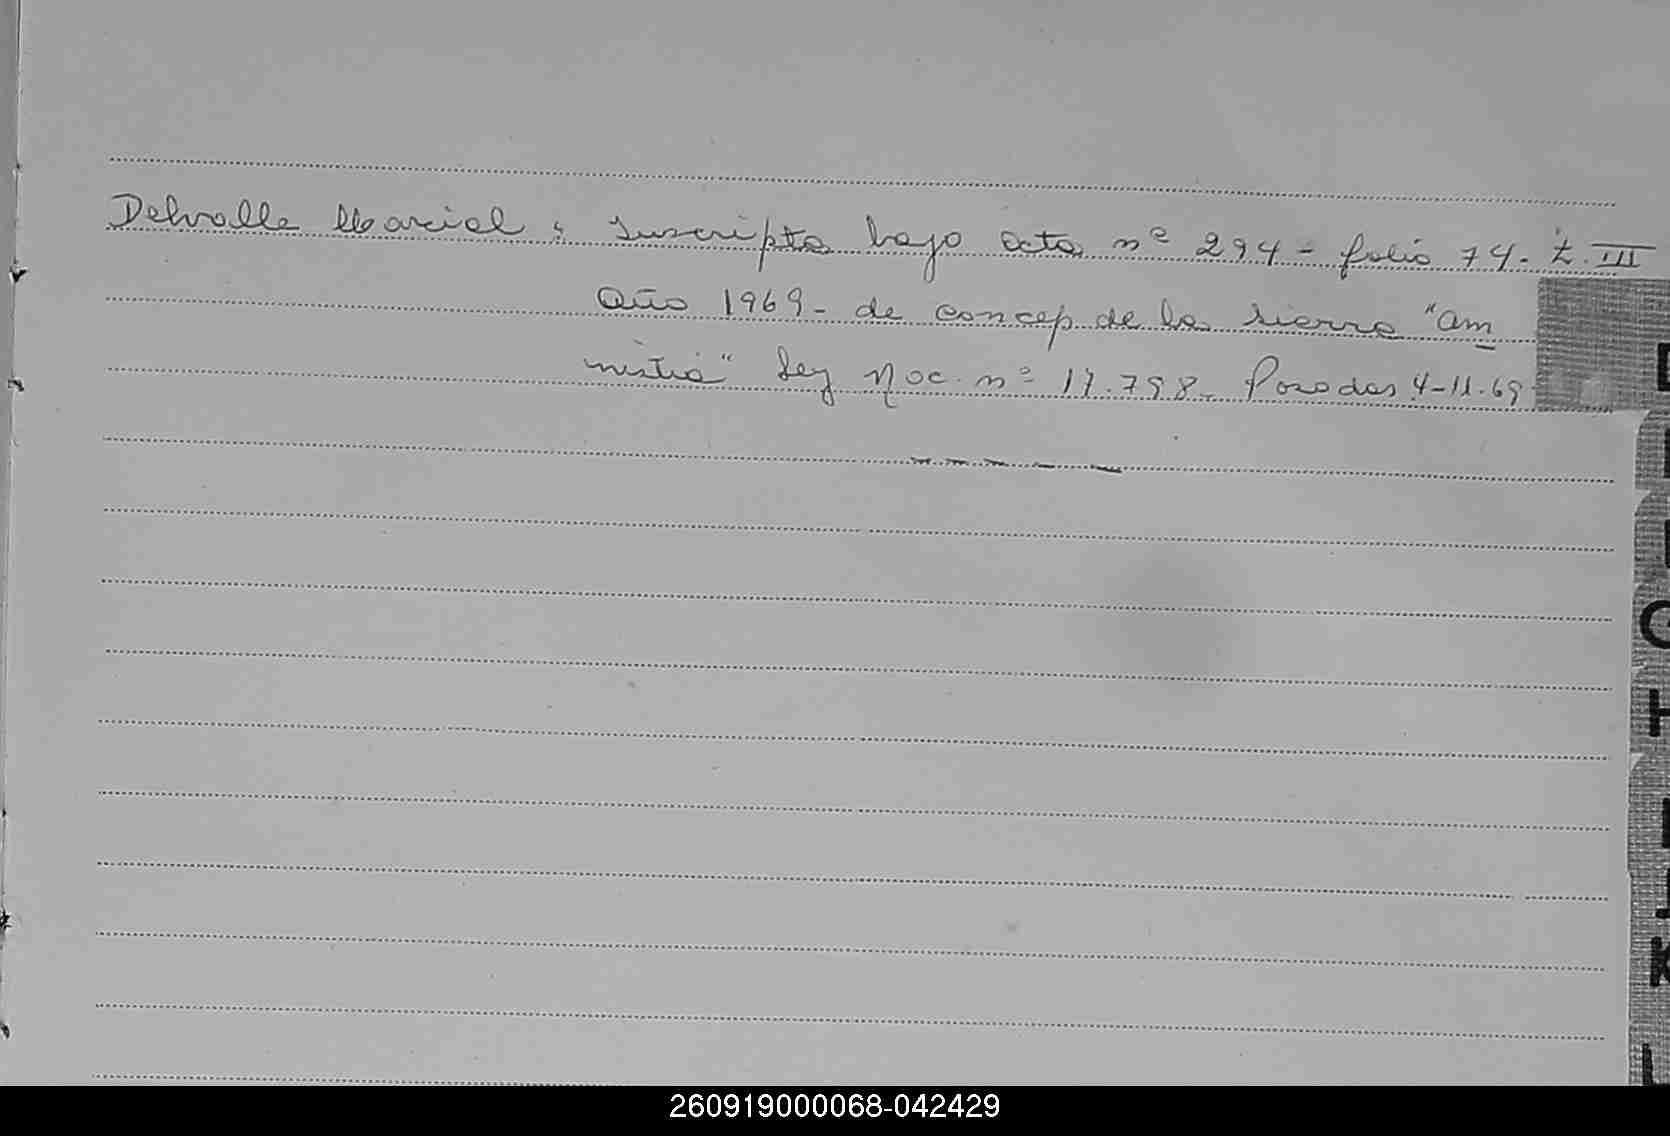 Delvalle Marcial : Inscripta bajo acta nº 294 - folio 74. t. III
año 1969 - de concep de la sierra "am
nistia" Ley Nac. nº 17.798 - Posadas 4-11-69
G
H
K
L
260919000068-042429